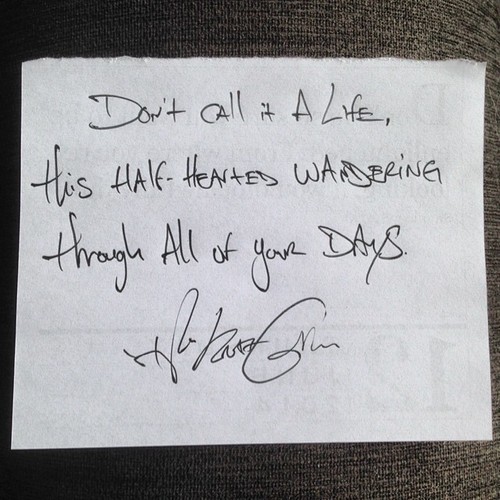 Don't call it A Life,
this HALF-HEARTED WANDERING
through All of your DAYS.